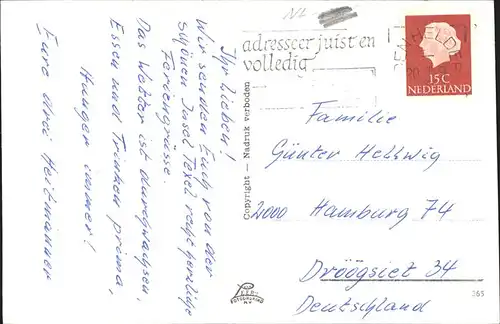 NL
adresseer juist en
volledig
DEN HELDER
15 C
NEDERLAND
Ihr Lieben!
Wir senden Euch von der
schönen Insel Texel recht herzliche
Feriengrüsse.
Das Wetter ist durchwachsen,
Essen und Trinken prima,
Hunger immer!
Eure drei Heitmänner
Copyright — Nadruk verboden
Familie
Günter Hellwig
2000 Hamburg 74
Dröögsiet 34
Deutschland
FOTODRUKKERIJ
N.V.
365